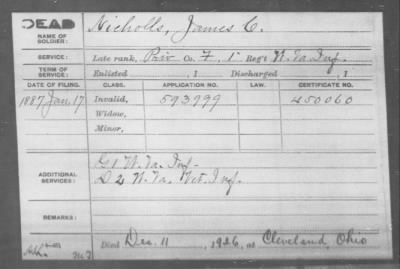 DEAD
NAME OF SOLDIER:
Nicholls, James C.
SERVICE:
Late rank, Priv Co. F, 1 Reg't W. Va. Inf.
TERM OF SERVICE:
Enlisted , 1 Discharged , 1
DATE OF FILING. CLASS. APPLICATION NO. LAW. CERTIFICATE NO.
1887 Jan. 17 Invalid, 593999 450060
Widow,
Minor,
ADDITIONAL SERVICES:
G 1 W. Va. Inf.
D 2 W. Va. Vet. Inf.
REMARKS:
Died Dec. 11, 1926, at Cleveland, Ohio